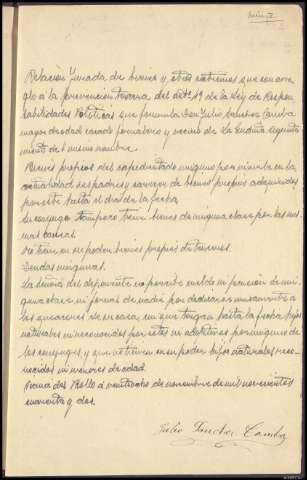 Relación Jurada de bienes y otros extremos que con arre
glo a la prevención tercera del artº 49 de la Ley de Respon
sabilidades Políticas que formula Don Julio Sanchez Camba
mayor de edad casado jornalero y vecino de La Gudiña Ayunta
miento del mismo nombre.
Bienes propios del expedientado ninguno por vivir en la
actualidad sus padres y carecer de bienes propios adquiridos
por este hasta el día de la fecha
Su conyuge tampoco tiene bienes de ninguna clase por las mis
mas causas.
No tiene en su poder bienes propios de terceros.
Deudas ningunas.
La señora del deponente no percibe sueldo ni pension de nin
guna clase ni firmas de nadie por dedicarse unicamente a
las ocupaciones de su casa, sin que tengan hasta la fecha hijos
naturales ni reconocidos por estos ni adoptivos por ninguno de
los conyuges, y que no tienen en su poder hijos naturales reco
nocidos ni menores de edad.
a veintiocho de noviembre de mil novecientos
cuarenta y dos.
Julio Sanchez Camba